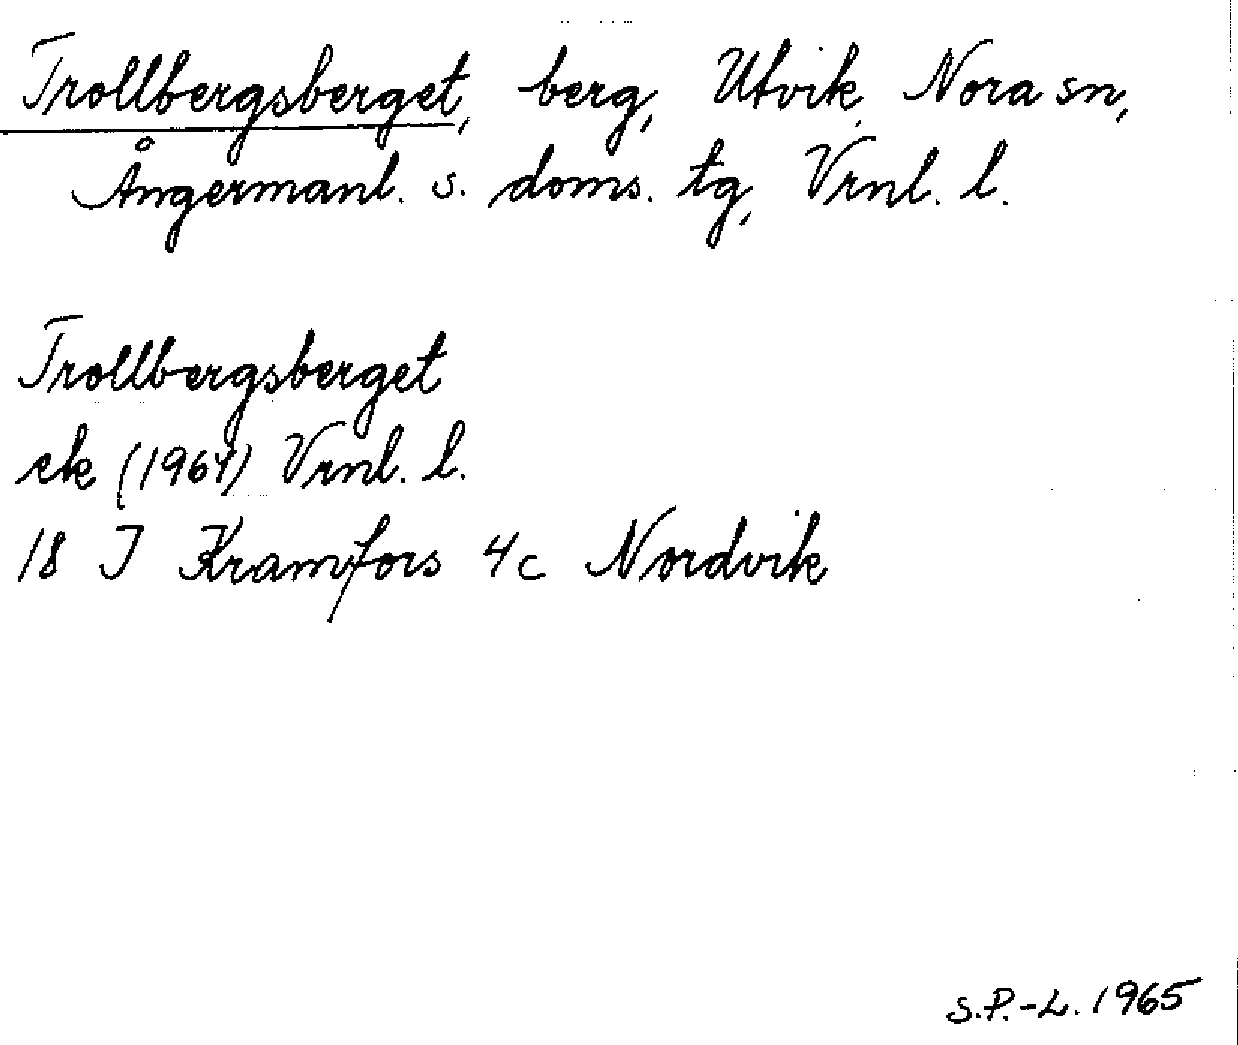 Trollbergsberget, berg, Utvik, Nora sn,
Ångermanl. s. doms. tg, Vrnl. l.
Trollbergsberget
ek (1964) Vrnl. l.
18 J Kramfors 4c Nordvik
S.P.-L. 1965